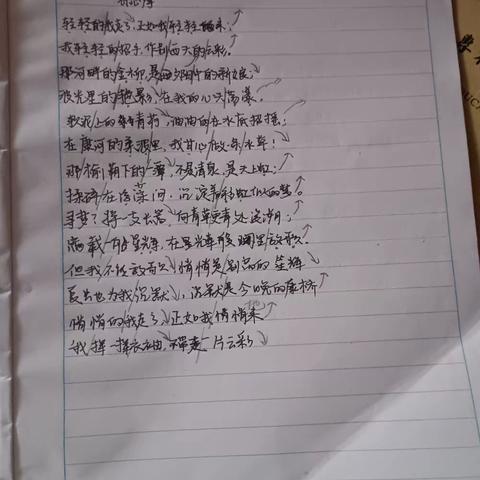 轻轻的我走了,正如我轻轻的来;
我轻轻的招手,作别西天的云彩。
那河畔的金柳,是夕阳中的新娘;
波光里的艳影,在我的心头荡漾。
软泥上的青荇,油油的在水底招摇;
在康河的柔波里,我甘心做一条水草!
那榆荫下的一潭,不是清泉,是天上虹;
揉碎在浮藻间,沉淀着彩虹似的梦。
寻梦?撑一支长篙,向青草更青处漫溯;
满载一船星辉,在星光斑斓里放歌。
但我不能放歌,悄悄是别离的笙箫
夏虫也为我沉默,沉默是今晚的康桥
悄悄的我走了,正如我悄悄来
我挥一挥衣袖,不带走一片云彩